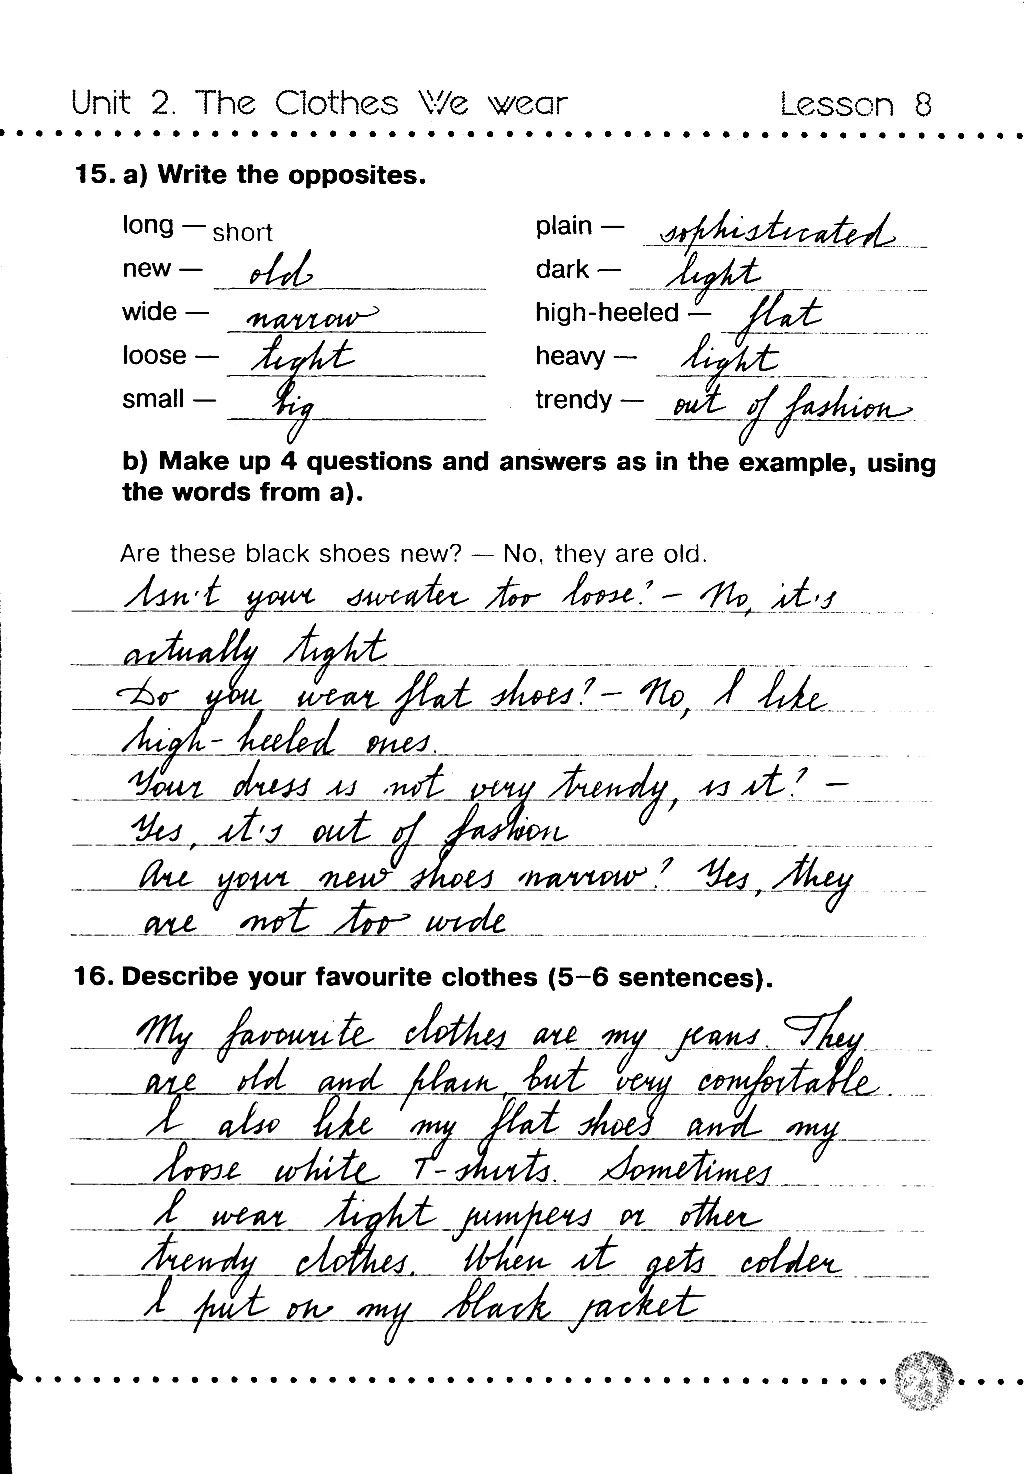 Unit 2. The Clothes We wear Lesson 8
15. a) Write the opposites.
long — short plain — sophisticated
new — old dark — light
wide — narrow high-heeled — flat
loose — tight heavy — light
small — big trendy — out of fashion
b) Make up 4 questions and answers as in the example, using
the words from a).
Are these black shoes new? — No, they are old.
Isn't your sweater too loose? – No, it's
actually tight
Do you wear flat shoes? – No, I like
high-heeled ones.
Your dress is not very trendy, is it? –
Yes, it's out of fashion
Are your new shoes narrow? Yes, they
are not too wide
16. Describe your favourite clothes (5–6 sentences).
My favourite clothes are my jeans. They
are old and plain, but very comfortable.
I also like my flat shoes and my
loose white T-shirts. Sometimes
I wear tight jumpers or other
trendy clothes. When it gets colder
I put on my black jacket